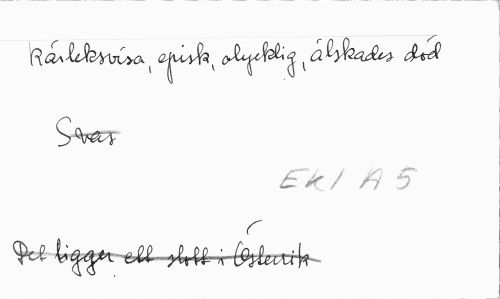 Kärleksvisa, episk, olycklig, älskades död
Svar
EKI A 5
Det ligger ett slott i Österrik